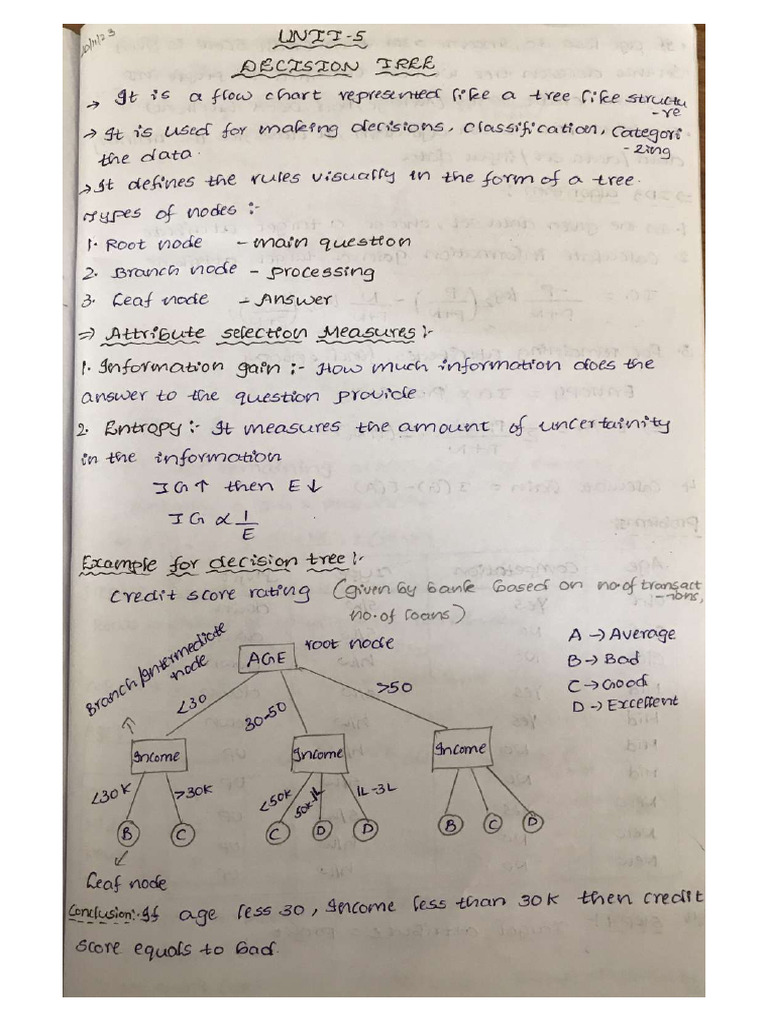 10/11/23
UNIT-5
DECISION TREE
→ It is a flow chart represented like a tree like structu
-re
→ It is used for making decisions, classification, categori
-zing
the data.
→ It defines the rules visually in the form of a tree.
Types of nodes :-
1. Root node - main question
2. Branch node - processing
3. Leaf node - Answer
⇒ Attribute selection Measures :-
1. Information gain :- How much information does the
answer to the question provide.
2. Entropy :- It measures the amount of uncertainity
in the information
IG ↑ then E ↓
IG ∝ 1/E
Example for decision tree :-
credit score rating (given by bank based on no. of transact
-ions,
no. of loans)
Branch/Intermediate
node
AGE
root node
A → Average
B → Bad
C → Good
D → Excellent
<30
30-50
>50
Income
Income
Income
<30K
>30K
<50K
50K-1L
1L-3L
B
C
C
D
D
B
C
D
Leaf node
Conclusion:- If age less 30, Income less than 30K then credit
score equals to bad.